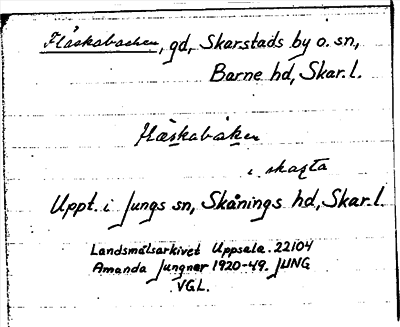 Fläskabacken, gd, Skarstads by o. sn,
Barne hd, Skar. l.
Flaskabaken
i skarta
Uppt. i Jungs sn, Skånings hd, Skar. l.
Landsmålsarkivet Uppsala. 22104
Amanda Jungner 1920-49. JUNG
VGL.